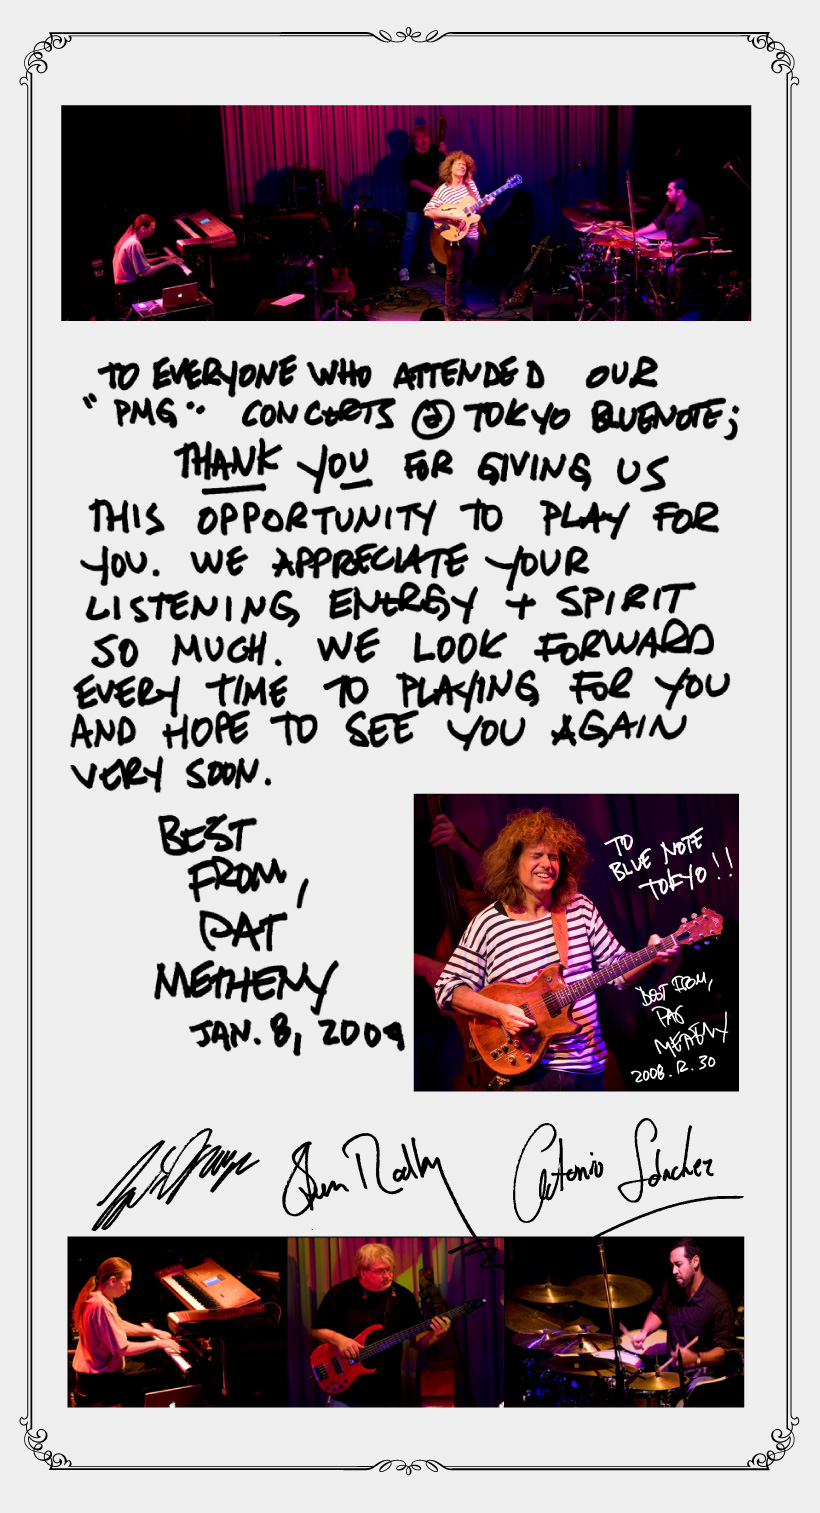 TO EVERYONE WHO ATTENDED OUR
"PMG" CONCERTS @ TOKYO BLUENOTE;
THANK YOU FOR GIVING US
THIS OPPORTUNITY TO PLAY FOR
YOU. WE APPRECIATE YOUR
LISTENING ENERGY + SPIRIT
SO MUCH. WE LOOK FORWARD
EVERY TIME TO PLAYING FOR YOU
AND HOPE TO SEE YOU AGAIN
VERY SOON.
BEST
FROM,
PAT
METHENY
JAN. 8, 2009
TO
BLUE NOTE
TOKYO!!
BEST FROM,
PAT
METHENY
2008.12.30
Steve Rodby
Antonio Sánchez